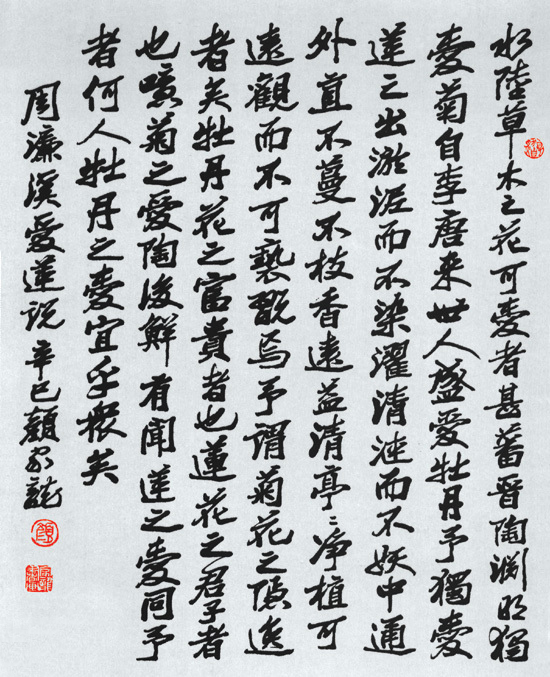 水陸草木之花可愛者甚蕃晋陶渊明獨
愛菊自李唐来世人盛愛牡丹予獨愛
蓮之出淤泥而不染濯清涟而不妖中通
外直不蔓不枝香遠益清亭〻净植可
遠觀而不可褻翫焉予謂菊花之隐逸
者矣牡丹花之富貴者也蓮花之君子者
也噫菊之愛陶後鮮有聞蓮之愛同予
者何人牡丹之愛宜乎衆矣
周濂溪愛蓮説辛巳顧家龍